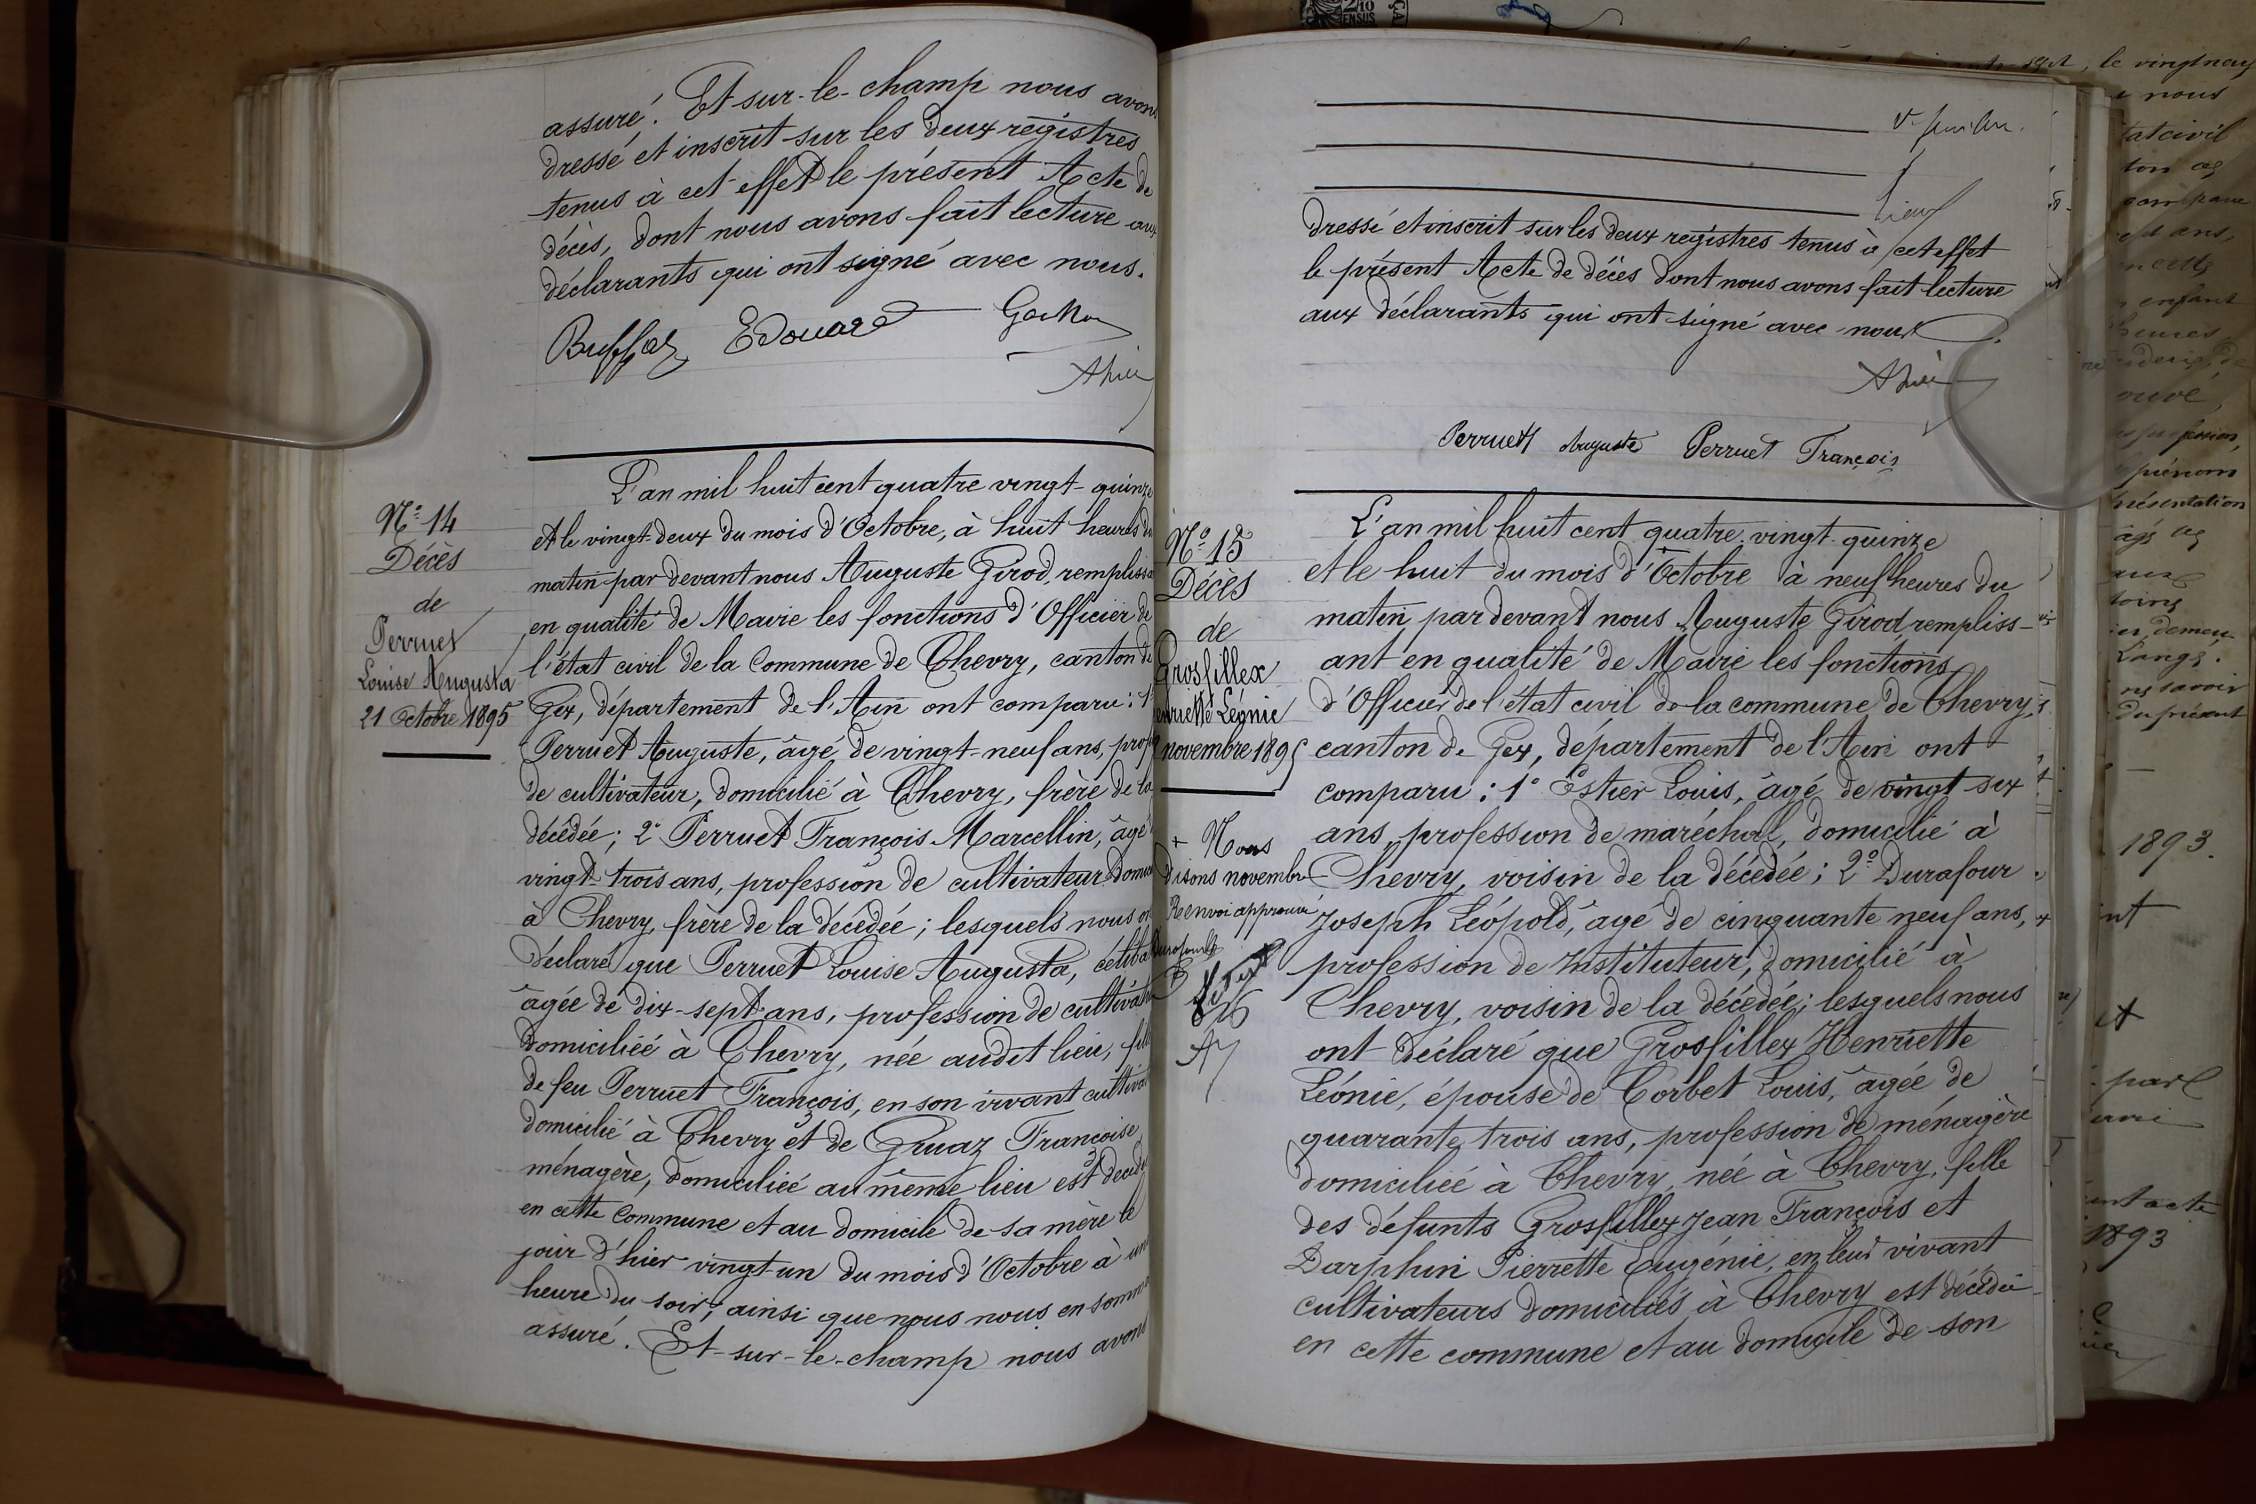 assuré. Et sur-le-champ nous avons
dressé et inscrit sur les deux registres
tenus à cet effet le présent Acte de
décès, dont nous avons fait lecture aux
déclarants qui ont signé avec nous.
Edouard
N° 14
Décès
de
Perruet
Louise Augusta
21 Octobre 1895
L'an mil huit cent quatre vingt-quinze
et le vingt-deux du mois d'Octobre, à huit heures du
matin par devant nous Auguste Girod, remplissa
en qualité de Maire les fonctions d'Officier de
l'état civil de la Commune de Chevry, canton de
Gex, département de l'Ain ont comparu: 1°
Perruet Auguste, âgé de vingt-neuf ans, prof
de cultivateur, domicilié à Chevry, frère de la
décédée; 2° Perruet François Marcellin, âgé
vingt-trois ans, profession de cultivateur domici
à Chevry, frère de la décédée; lesquels nous on
déclaré que Perruet Louise Augusta, céliba
âgée de dix-sept ans, profession de cultivatr
domiciliée à Chevry, née audit lieu, fille
de feu Perruet François, en son vivant cultiva
domicilié à Chevry et de Gruaz Françoise
ménagère, domiciliée au même lieu est décédée
en cette Commune et au domicile de sa mère le
jour d'hier vingt-un du mois d'Octobre à une
heure du soir; ainsi que nous nous en somme
assuré. Et-sur-le-champ nous avons
dressé et inscrit sur les deux registres tenus à cet effet
le présent Acte de décès dont nous avons fait lecture
aux déclarants qui ont signé avec nous.
Perruet Auguste Perruet François
N° 15
Décès
de
Grosfillex
enriette Léonie
novembre 1895
+ Nous
disons novembre
Renvoi approuvé
L'an mil huit cent quatre-vingt-quinze
et le huit du mois d'Octobre à neuf heures du
matin par devant nous Auguste Girod, rempliss-
ant en qualité de Maire les fonctions
d'Officier de l'état civil de la commune de Chevry,
canton de Gex, département de l'Ain ont
comparu: 1° Estier Louis, âgé de vingt-six
ans, profession de maréchal, domicilié à
Chevry, voisin de la décédée; 2° Durafour
Joseph Léopold, âgé de cinquante neuf ans,
profession de Instituteur, domicilié à
Chevry, voisin de la décédée; lesquels nous
ont déclaré que Grosfillex Henriette
Léonie, épouse de Corbet Louis, âgée de
quarante trois ans, profession de ménagère
domiciliée à Chevry, née à Chevry, fille
des défunts Grosfillex Jean François et
Darphin Pierrette Eugénie, en leur vivant
cultivateurs domiciliés à Chevry est décédée
en cette commune et au domicile de son
le vingt neuf
nous
état civil
enfant
heures
prénoms
présentation
1893.
1893